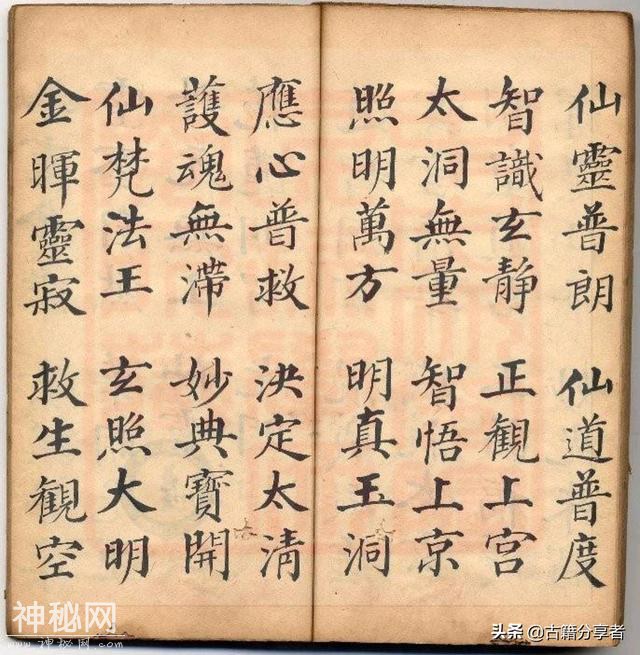 仙靈普朗 仙道普度
智識玄靜 正觀上宮
太洞無量 智悟上京
照明萬方 明真玉洞
應心普救 決定太清
護魂無滯 妙典寶開
仙梵法王 玄照大明
金暉靈寂 救生觀空
神秘网
www.神秘网.com
头条 @古籍分享者